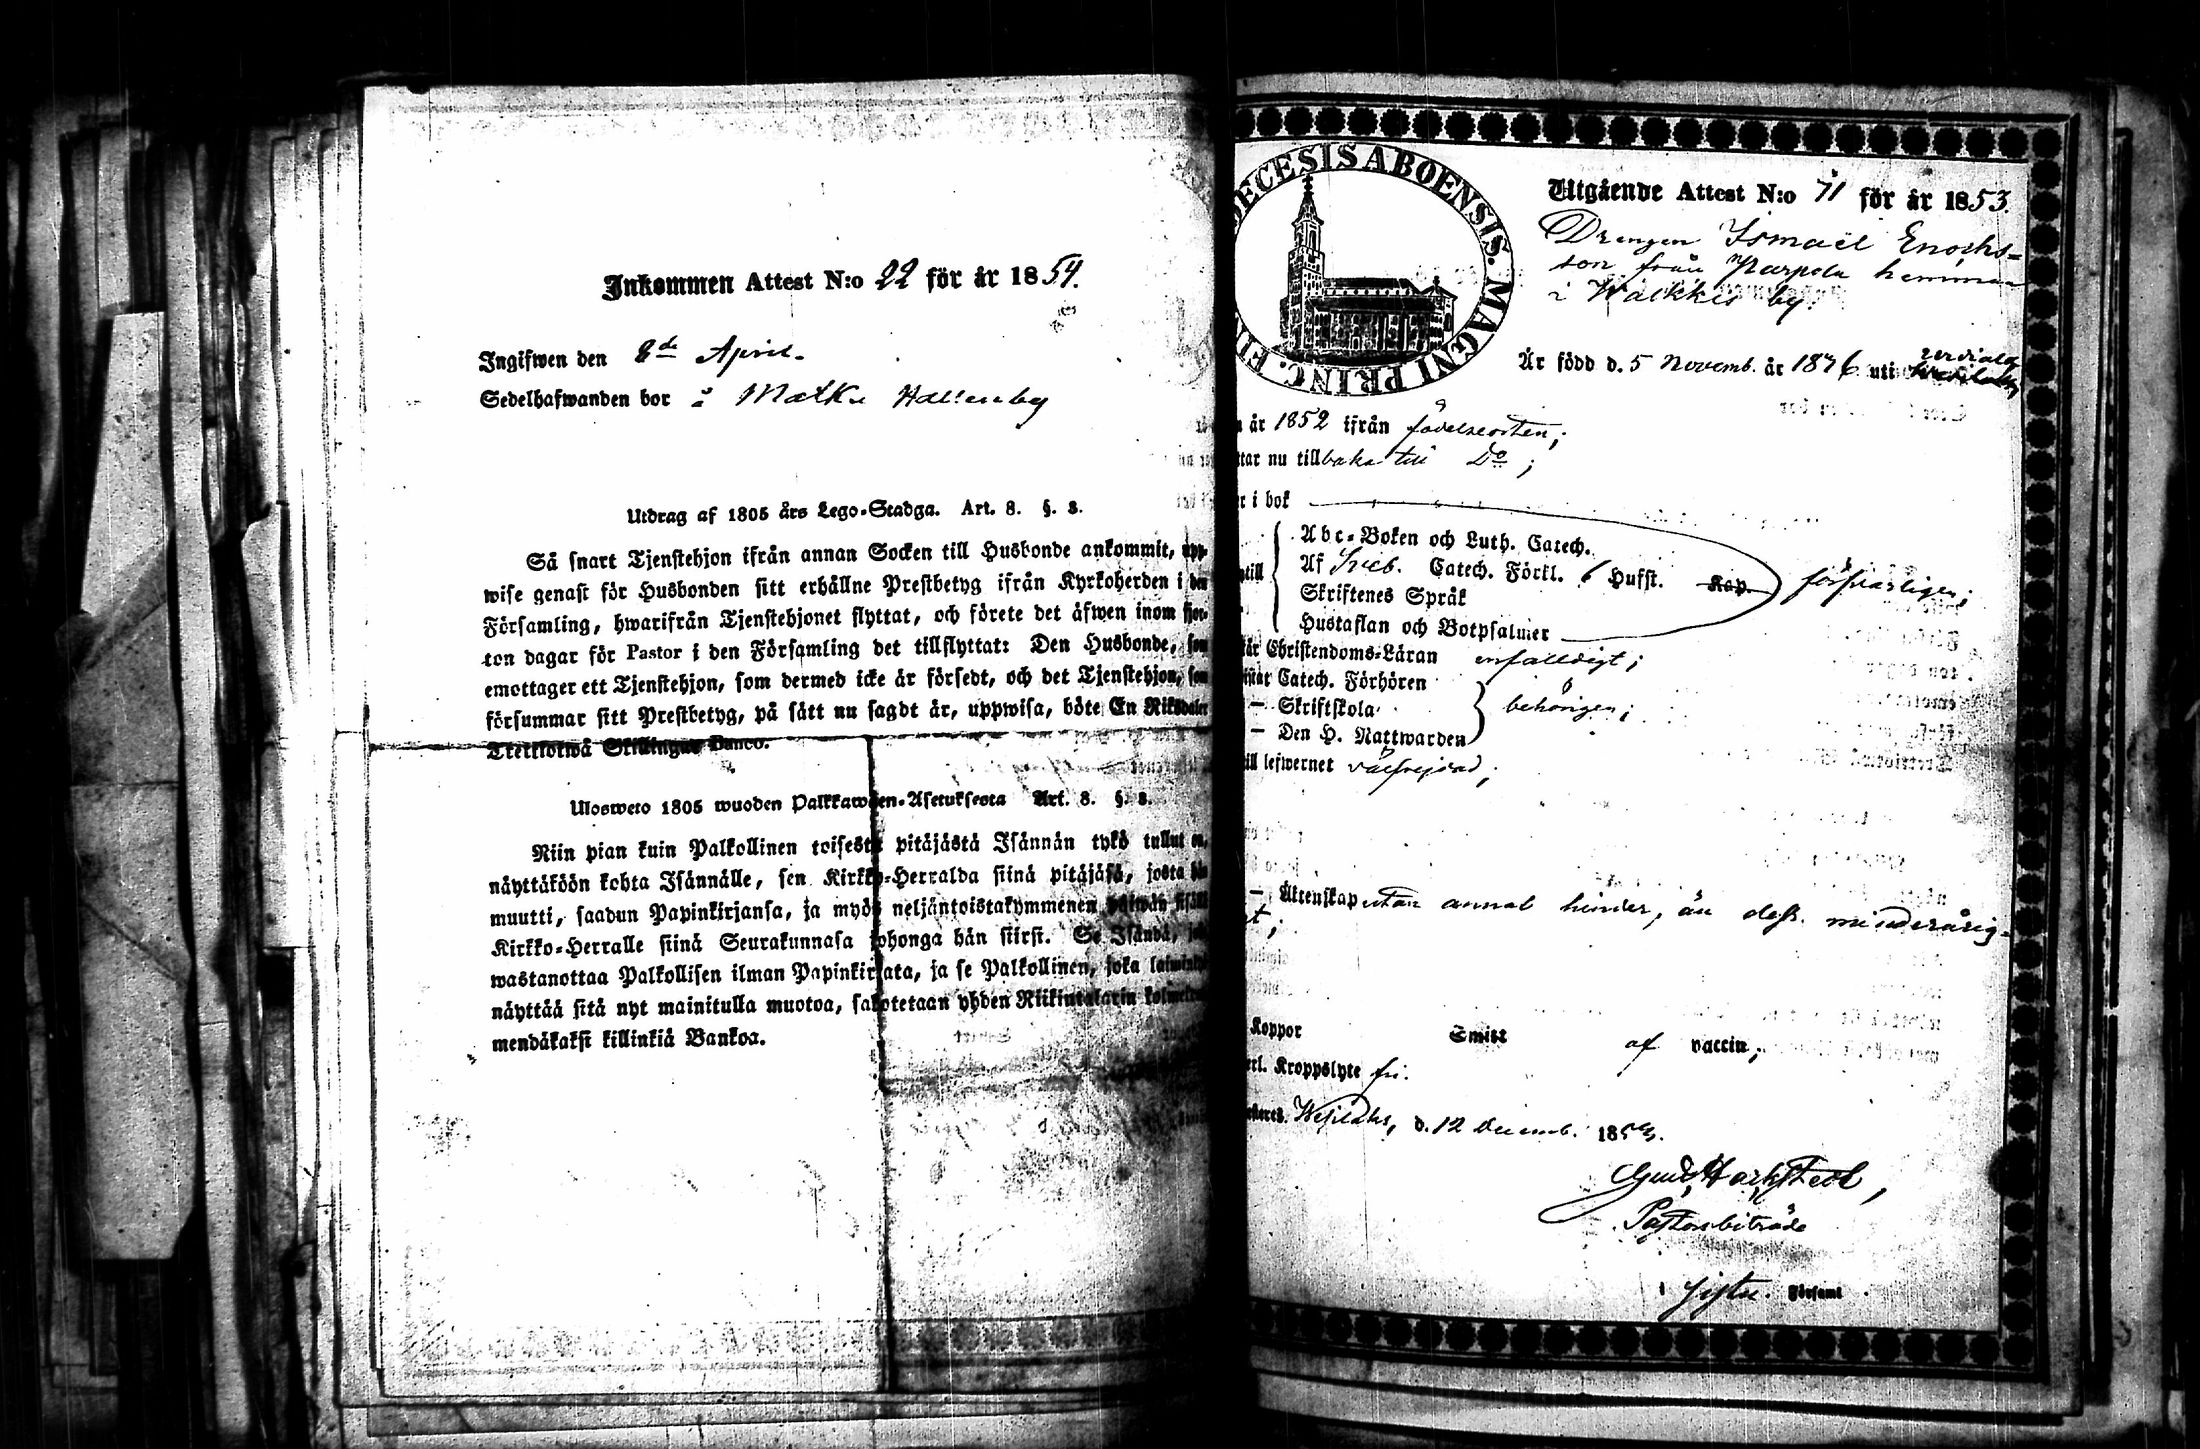 Inkommen Attest N:o 22 för år 1854.
Ingifwen den 8de April.
Sedelhafwanden bor å Matku
Utdrag af 1805 års Lego-Stadga. Art. 8. §. 8.
Så snart Tjenstehjon ifrån annan Socken till Husbonde ankommit, upp-
wise genast för Husbonden sitt erhållne Prestbetyg ifrån Kyrkoherden i den
Församling, hwarifrån Tjenstehjonet flyttat, och förete det äfwen inom fjor-
ton dagar för Pastor i den Församling det tillflyttat: Den Husbonde, som
emottager ett Tjenstehjon, som dermed icke är försedt, och det Tjenstehjon, som
försummar sitt Prestbetyg, på sätt nu sagdt är, uppwisa, böte En Riksdaler
Trettiotwå Skillingar Banco.
Ulosweto 1805 wuoden Palkkawäen-Asetuksesta Art. 8. §. 8.
Niin pian kuin Palkollinen toisesta pitäjästä Isännän tykö tullut on,
näyttäköön kohta Isännälle, sen Kirkko-Herralda siinä pitäjäsä, josta hän
muutti, saadun Papinkirjansa, ja myös neljäntoistakymmenen päiwän sisällä
Kirkko-Herralle siinä Seurakunnasa johonga hän siirsi. Se Isändä, joka
wastanottaa Palkollisen ilman Papinkirjata, ja se Palkollinen, joka laiminlyö
näyttää sitä nyt mainitulla muotoa, sakotetaan yhden Riikintalarin kolme
mendäkaksi killinkiä Bankoa.
DECESIS ABOENSIS. MAGNI PRINC.
Utgående Attest N:o 71 för år 1853.
Drengen Ismaël Enochs-
son från Parpola hemman
i Walkkis by.
Är född d. 5 Novemb. år 1826 uti
år 1852 ifrån födelseorten;
ttar nu tillbaka till Do;
r i bok
Abc-Boken och Luth. Catech.
Af Sveb. Catech. Förkl. 6 Hufst. Kap. försvarligen;
Skriftenes Språk
Hustaflan och Botpsalmer
Christendoms-Läran enfalldigt;
Catech. Förhören
— Skriftskola behörigen;
— Den H. Nattwarden
till lefwernet välfrejdad;
— Äktenskap utan annat hinder, än dess minderårig-
t;
Koppor Smitt af vaccin,
Kroppslyte fri.
Wesilaks, d. 12 Decemb. 1853.
Pastorsbiträde
i Församl.